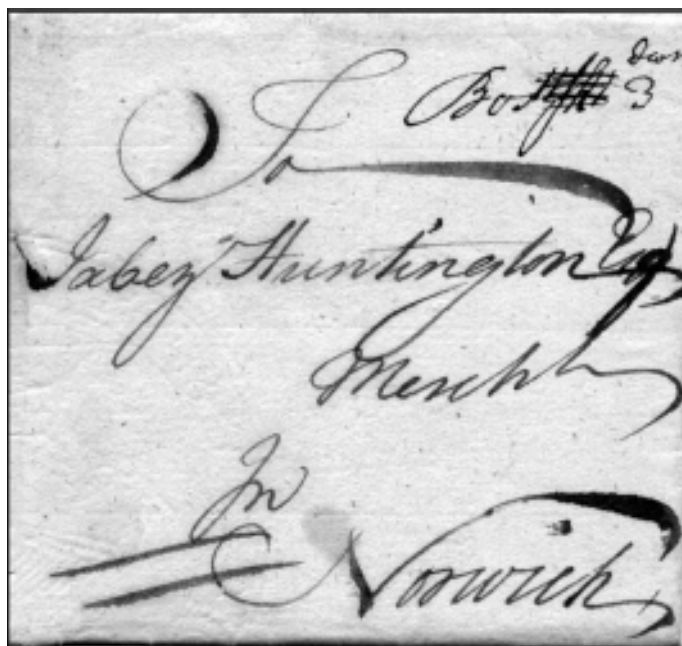 Bos
dwt
3
To
Jabez Huntington Esqr
Mercht
In
Norwich